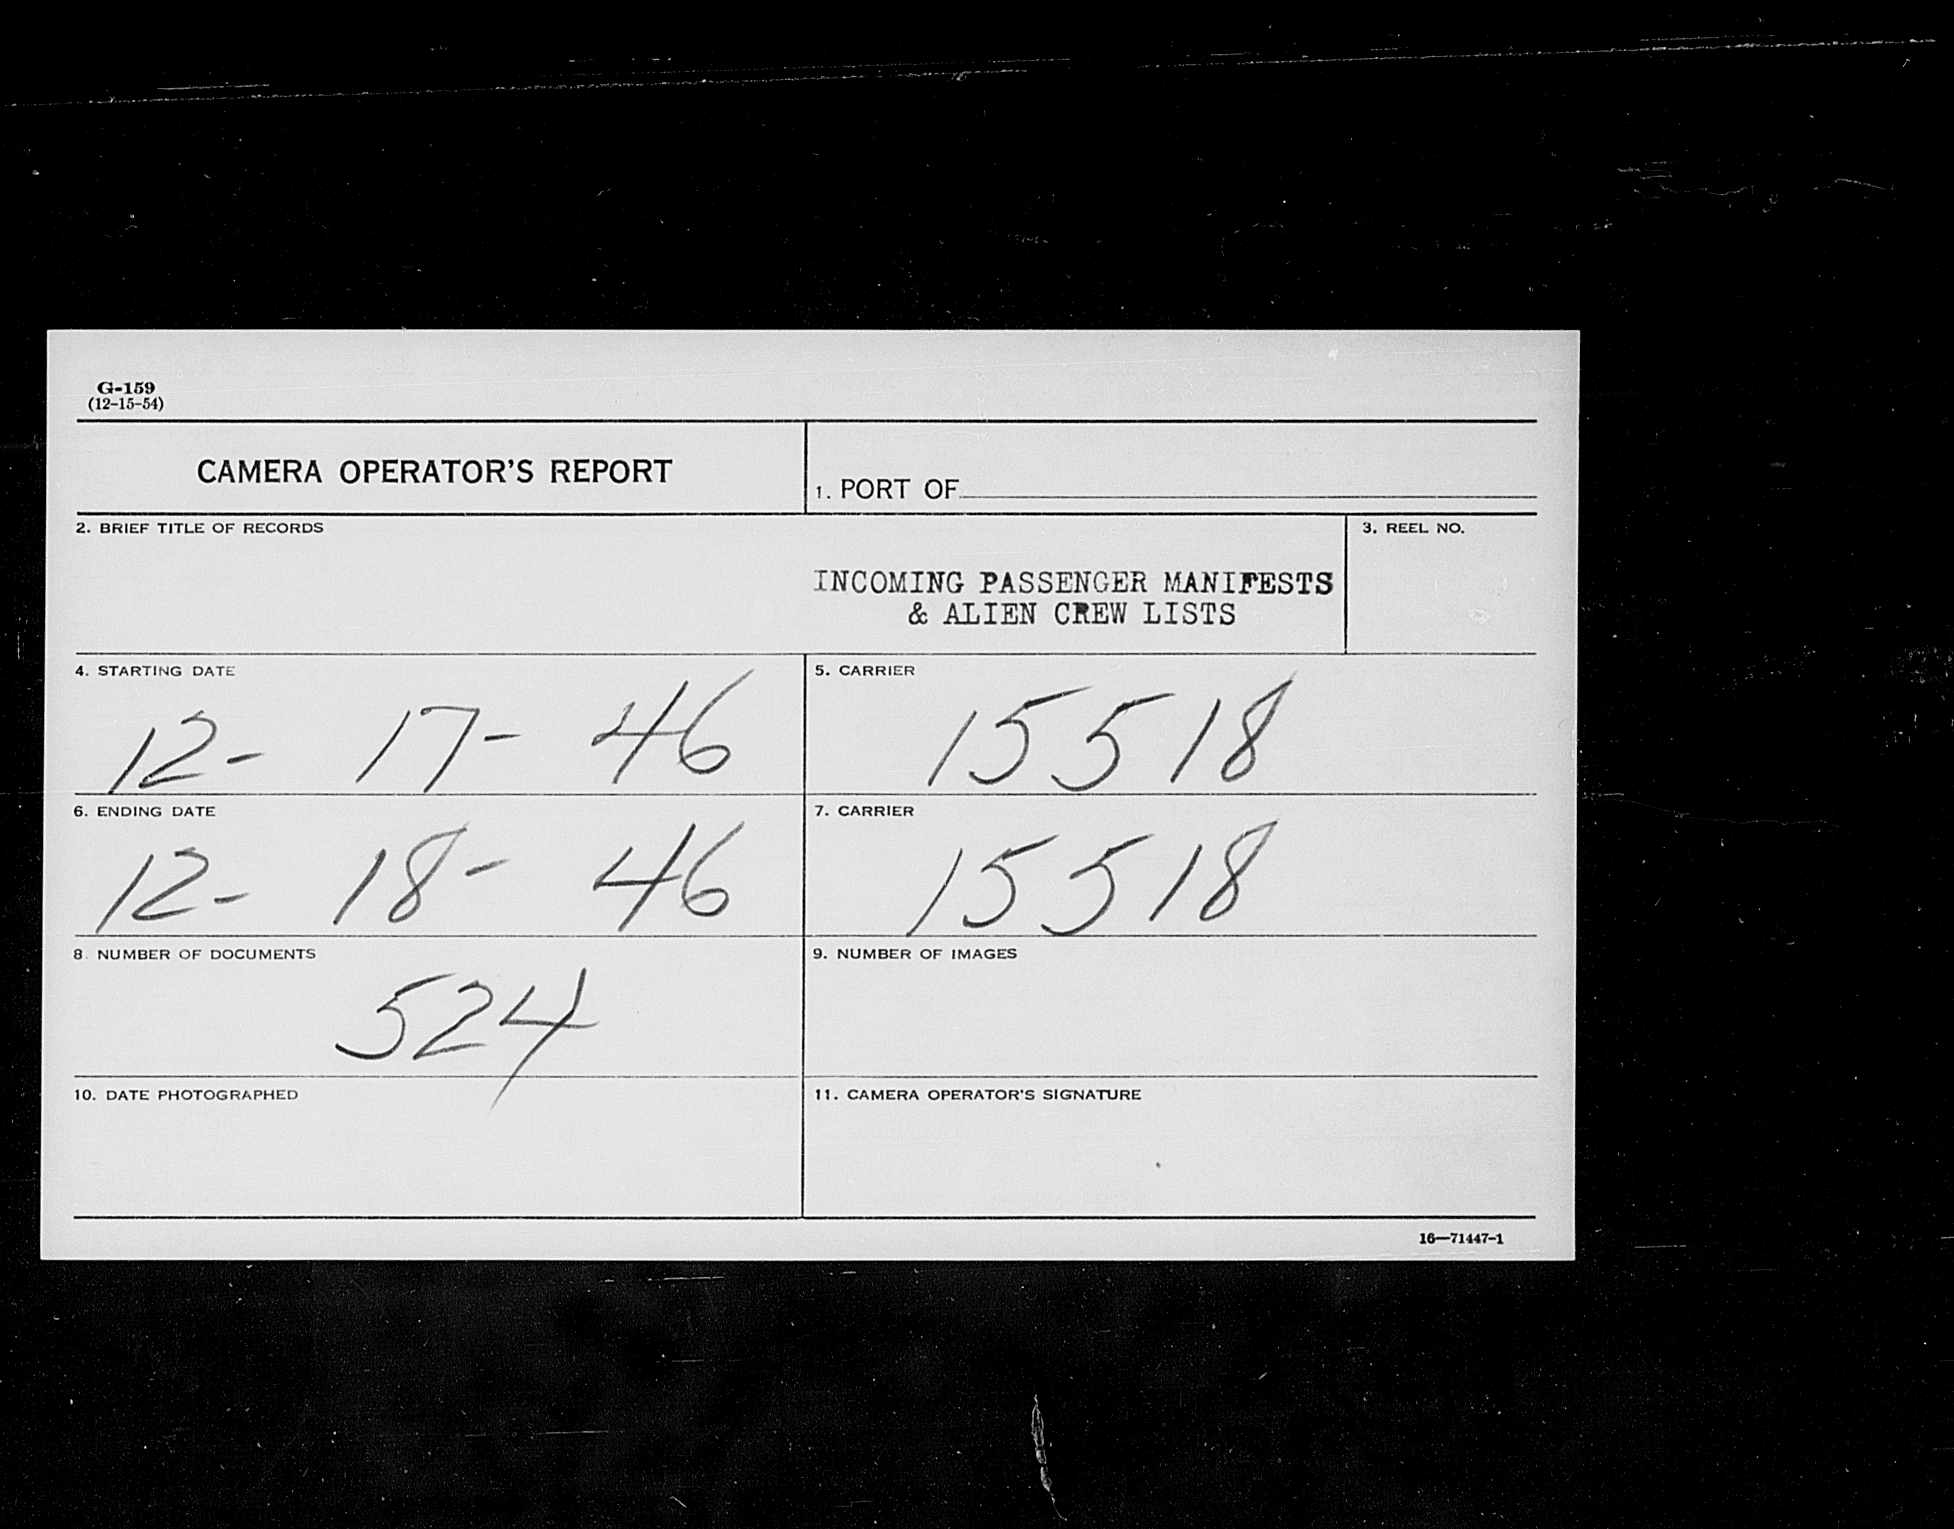 G-159
(12-15-54)
CAMERA OPERATOR'S REPORT
1. PORT OF
2. BRIEF TITLE OF RECORDS
3. REEL NO.
INCOMING PASSENGER MANIFESTS
& ALIEN CREW LISTS
4. STARTING DATE
12- 17- 46
5. CARRIER
15518
6. ENDING DATE
12- 18- 46
7. CARRIER
15518
8. NUMBER OF DOCUMENTS
524
9. NUMBER OF IMAGES
10. DATE PHOTOGRAPHED
11. CAMERA OPERATOR'S SIGNATURE
16—71447-1